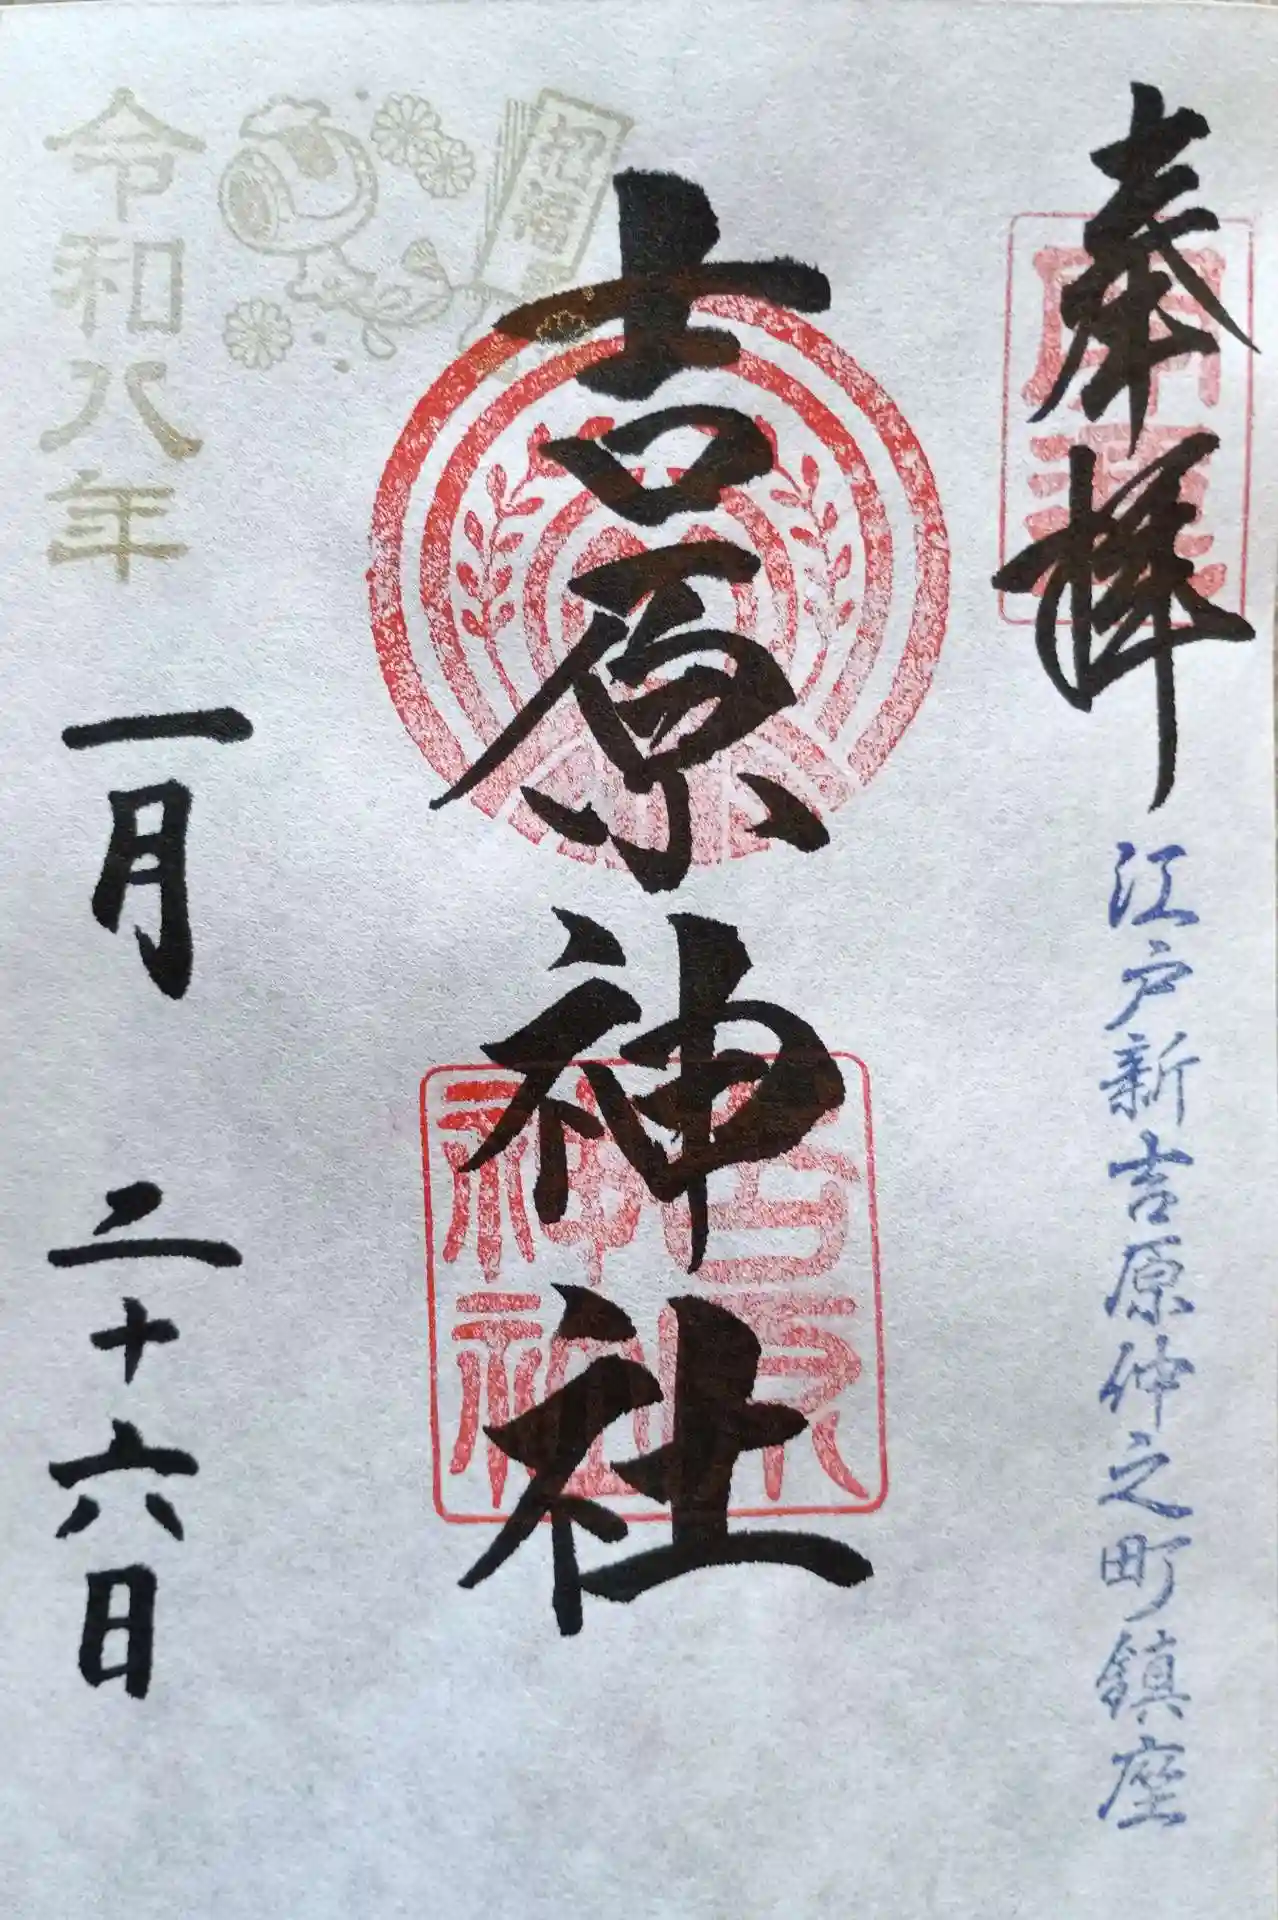 奉拝
江戸新吉原仲之町鎮座
吉原神社
吉原神社
祝福
令和八年
一月二十六日